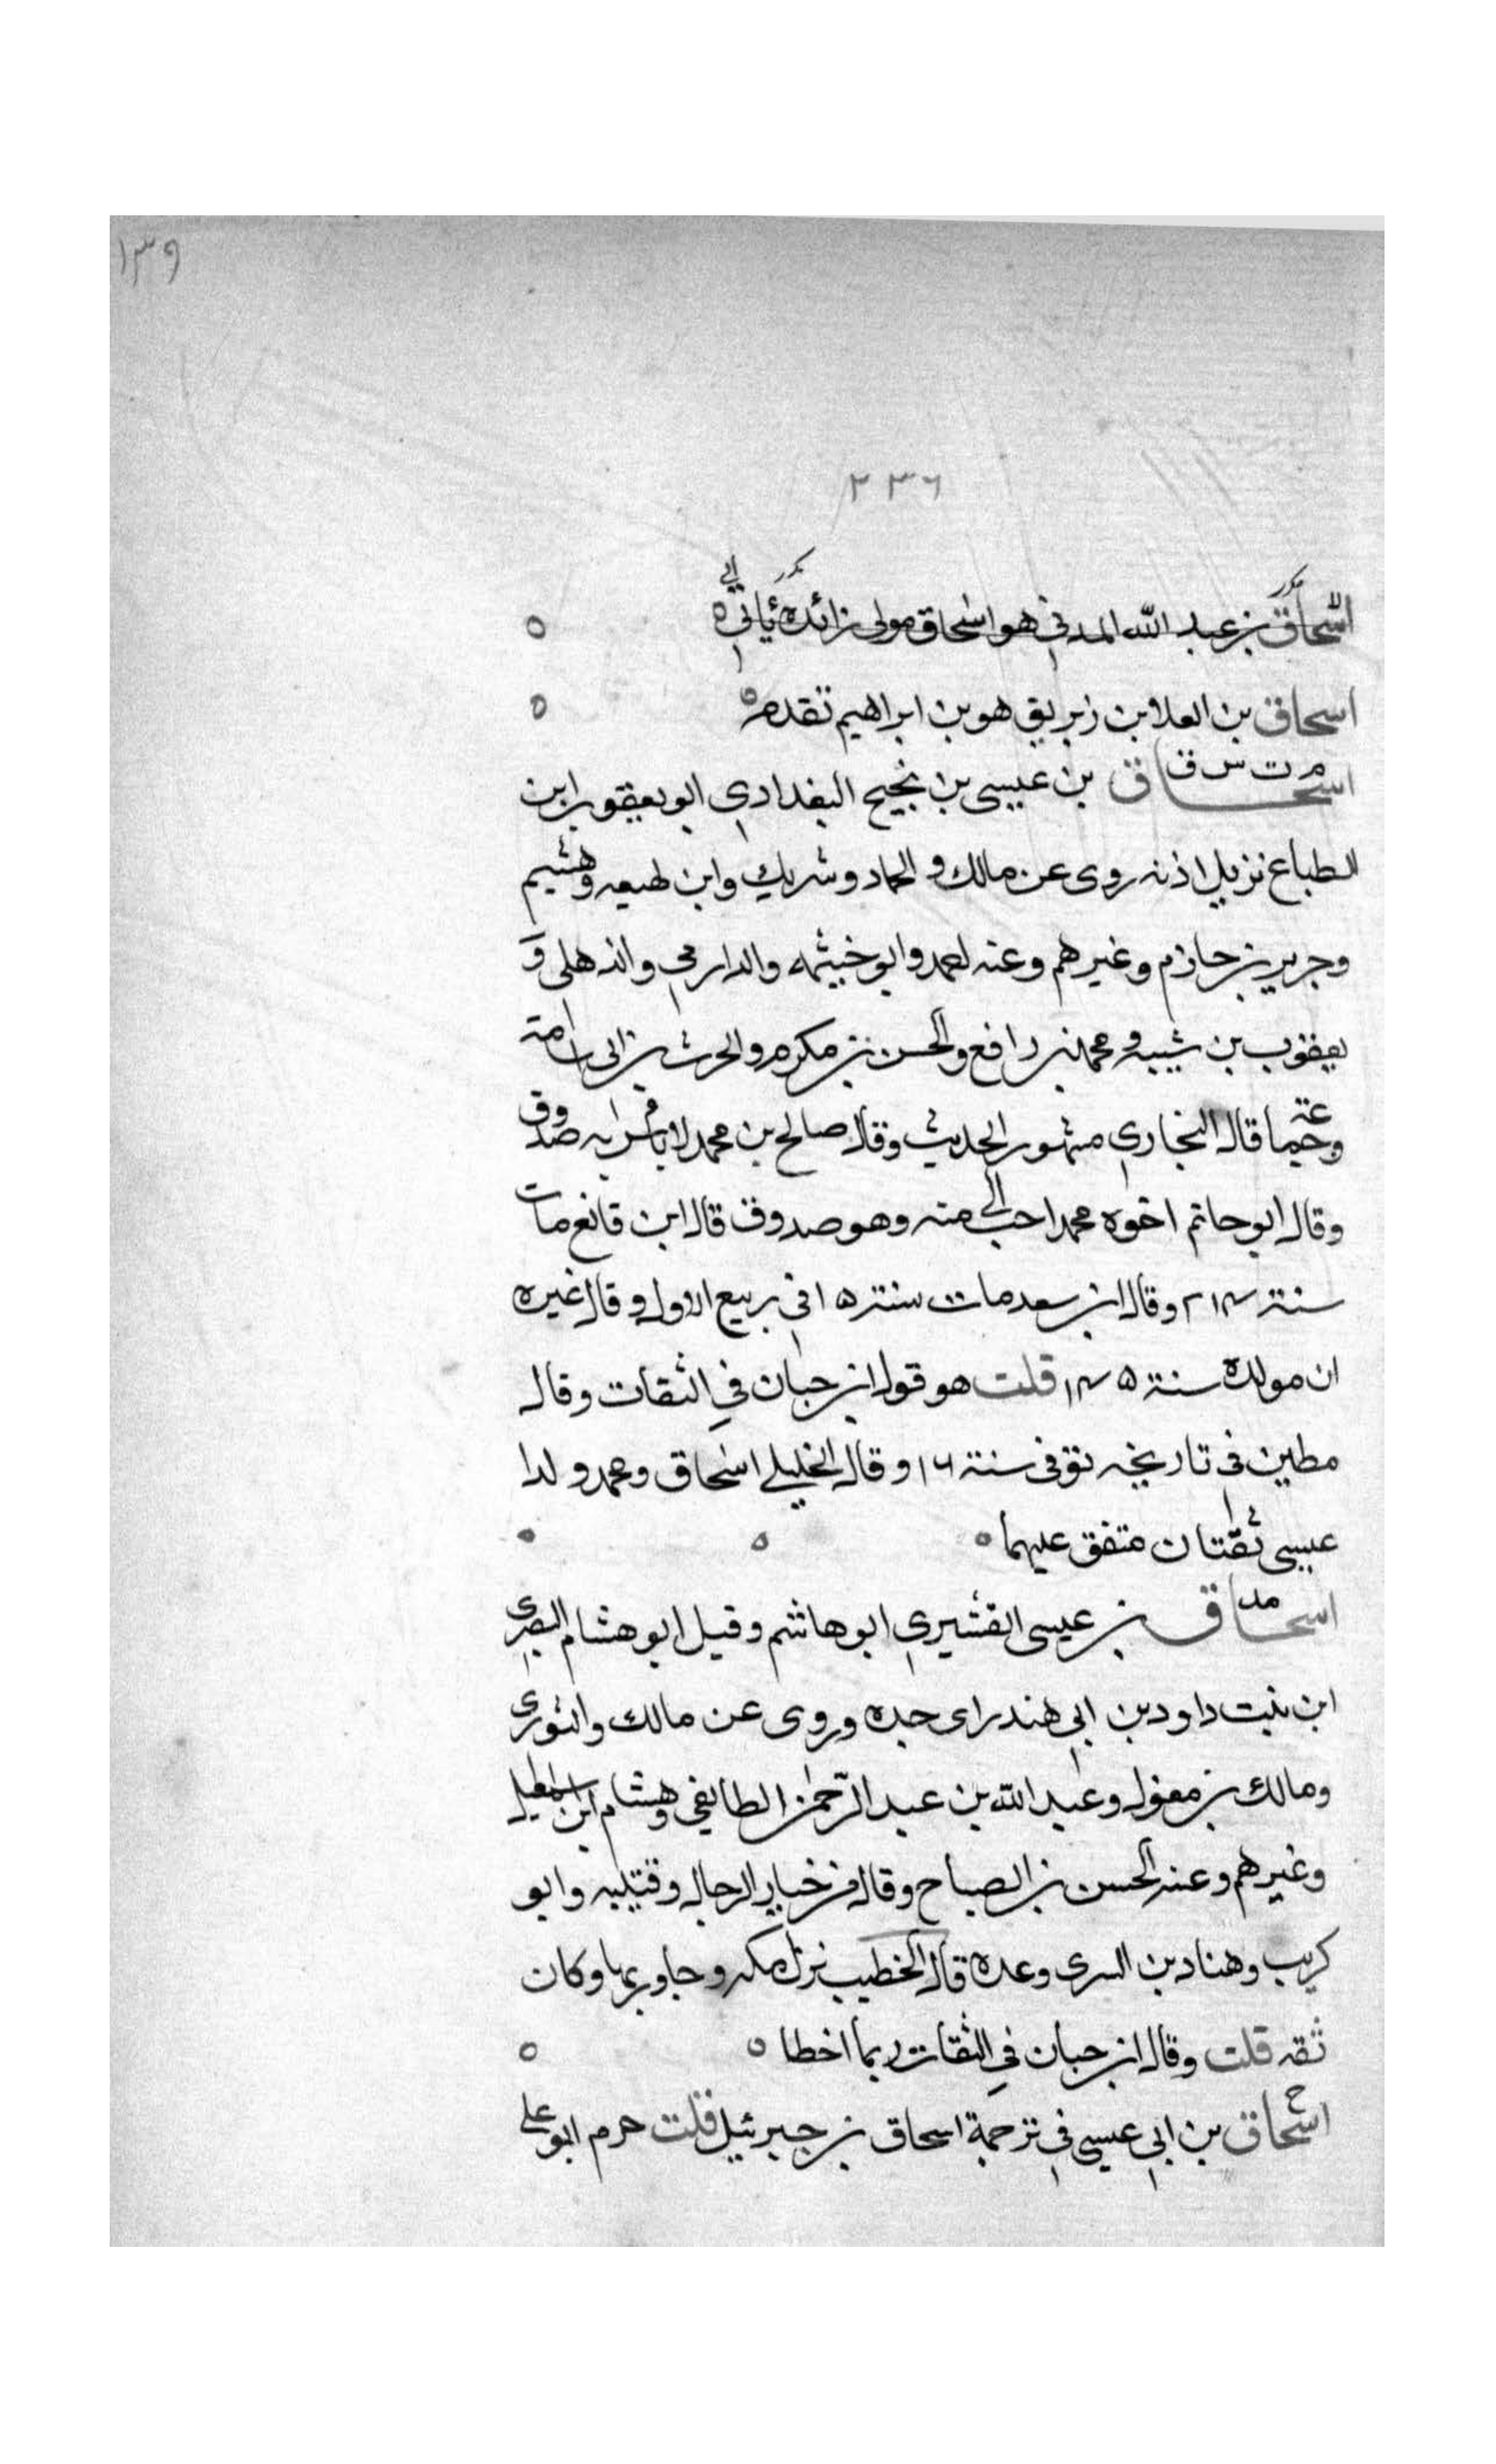 ١٣٩
٢٣٦
اسحاق بن عبد الله المدني هو اسحاق مولى زائدة ياتي
اسحاق بن العلا بن زبريق هو بن ابراهيم تقدم
م ت س ق
اسحاق بن عيسى بن نجيح البغدادي ابو يعقوب ابن
الطباع نزيل اذنه روى عن مالك و الحماد وشريك وابن لهيعه وهشيم
وجرير بن حازم وغيرهم وعنه احمد وابو خيثمه والدارمي والذهلى و
يعقوب بن شيبه ومحمد بن رافع والحسن بن مكرم والحرث بن ابى اسامة
وجماعة قال البخاري مشهور الحديث وقال صالح بن محمد لا باس به صدوق
وقال ابو حاتم اخوه محمد احب الي منه وهو صدوق قال ابن قانع مات
سنة ٢١٤ وقال ابن سعد مات سنة ١٥ في ربيع الاول وقال غيره
ان مولده سنة ١٤٥ قلت هو قول ابن حبان في الثقات وقال
مطين في تاريخه توفى سنة ١٦ وقال الخليلي اسحاق ومحمد ولدا
عيسى ثقتان متفق عليهما
مد
اسحاق بن عيسى القشيري ابو هاشم وقيل ابو هشام البصرى
ابن بنت داود بن ابي هند راى جده وروى عن مالك والثورى
ومالك بن مغول وعبد الله بن عبد الرحمن الطايفي وهشام ابن اسمعيل
وغيرهم وعنه الحسن بن الصباح وقال من خيار الرجال وقتيبه وابو
كريب وهناد بن السرى وعده قال الخطيب نزل مكه وجاور بها وكان
ثقه قلت وقال ابن حبان في الثقات ربما اخطا
خ
اسحاق بن ابي عيسى في ترجمة اسحاق بن جبرئيل قلت حرم ابو على